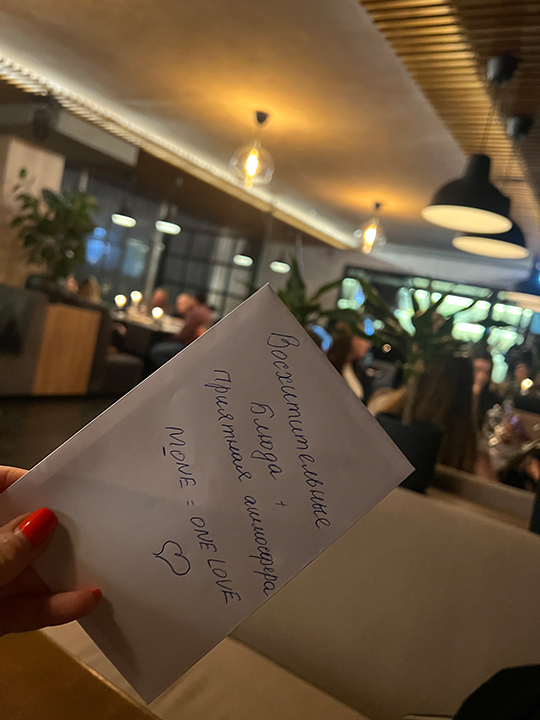 Восхитительные
Блюда +
приятная атмосфера
MONE = ONE LOVE